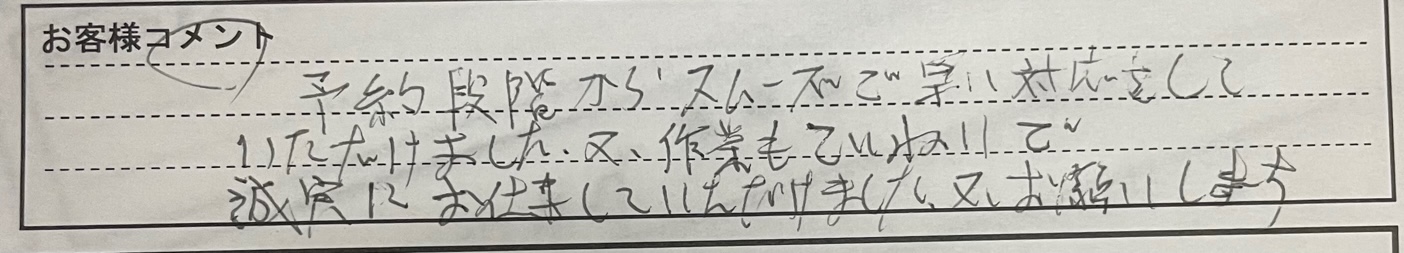 お客様コメント
予約段階からスムーズで早い対応をして
いただけました、又、作業もていねいで
誠実にお仕事していただけました、又、お願いします